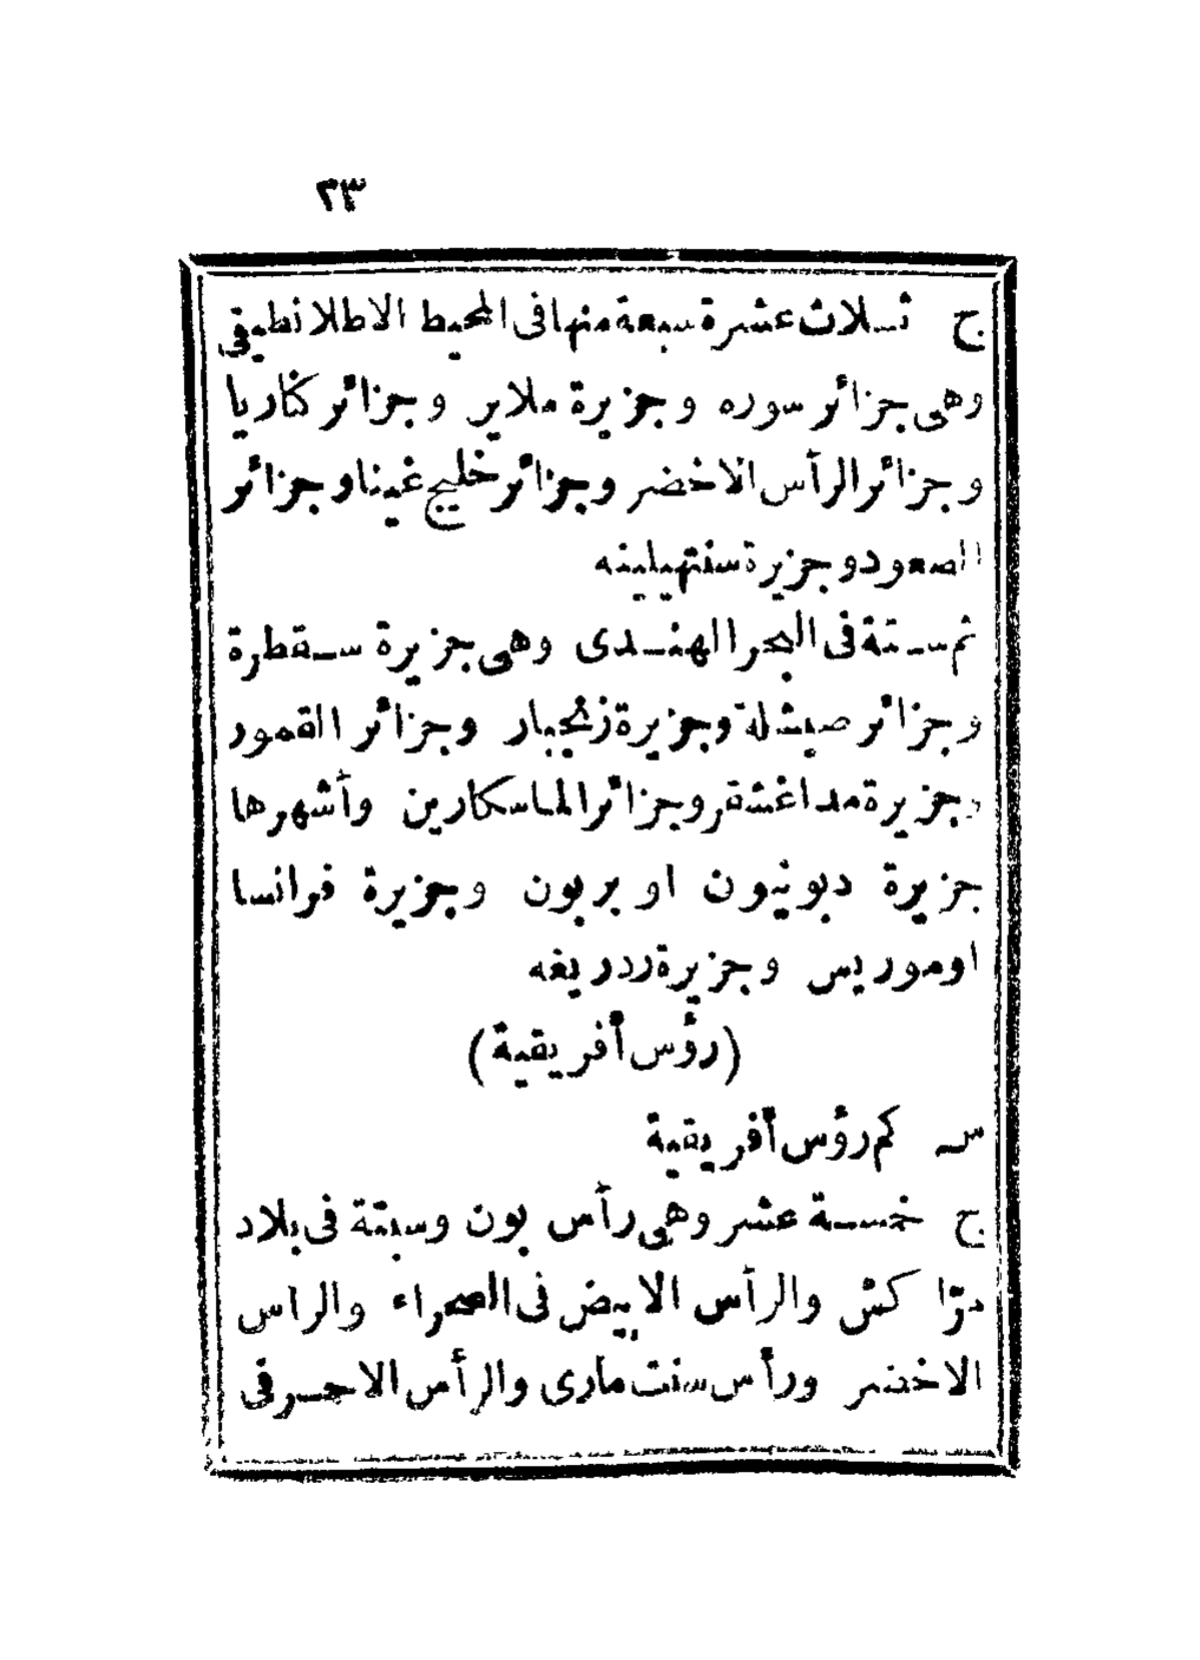 ٢٣
ج ثلاث عشرة سبعة منها فى المحيط الاطلانطيقى
وهى جزائر سوره وجزيرة ملاير وجزائر كناريا
وجزائر الرأس الاخضر وجزائر خليج غينا وجزائر
الصعود وجزيرة سنتهيلينه
ثم ستة فى البحر الهندى وهى جزيرة سقطرة
وجزائر صيشلة وجزيرة زنجبار وجزائر القمور
وجزيرة مداغشقر وجزائر الماسكارين وأشهرها
جزيرة ديونيون او بربون وجزيرة فرانسا
او موريس وجزيرة ردريغه
(رؤس أفريقية)
س كم رؤس أفريقية
ج خمسة عشر وهى رأس بون وسبتة فى بلاد
مرّاكش والرأس الابيض فى الصحراء والراس
الاخضر ورأس سنت مارى والرأس الاحمر فى